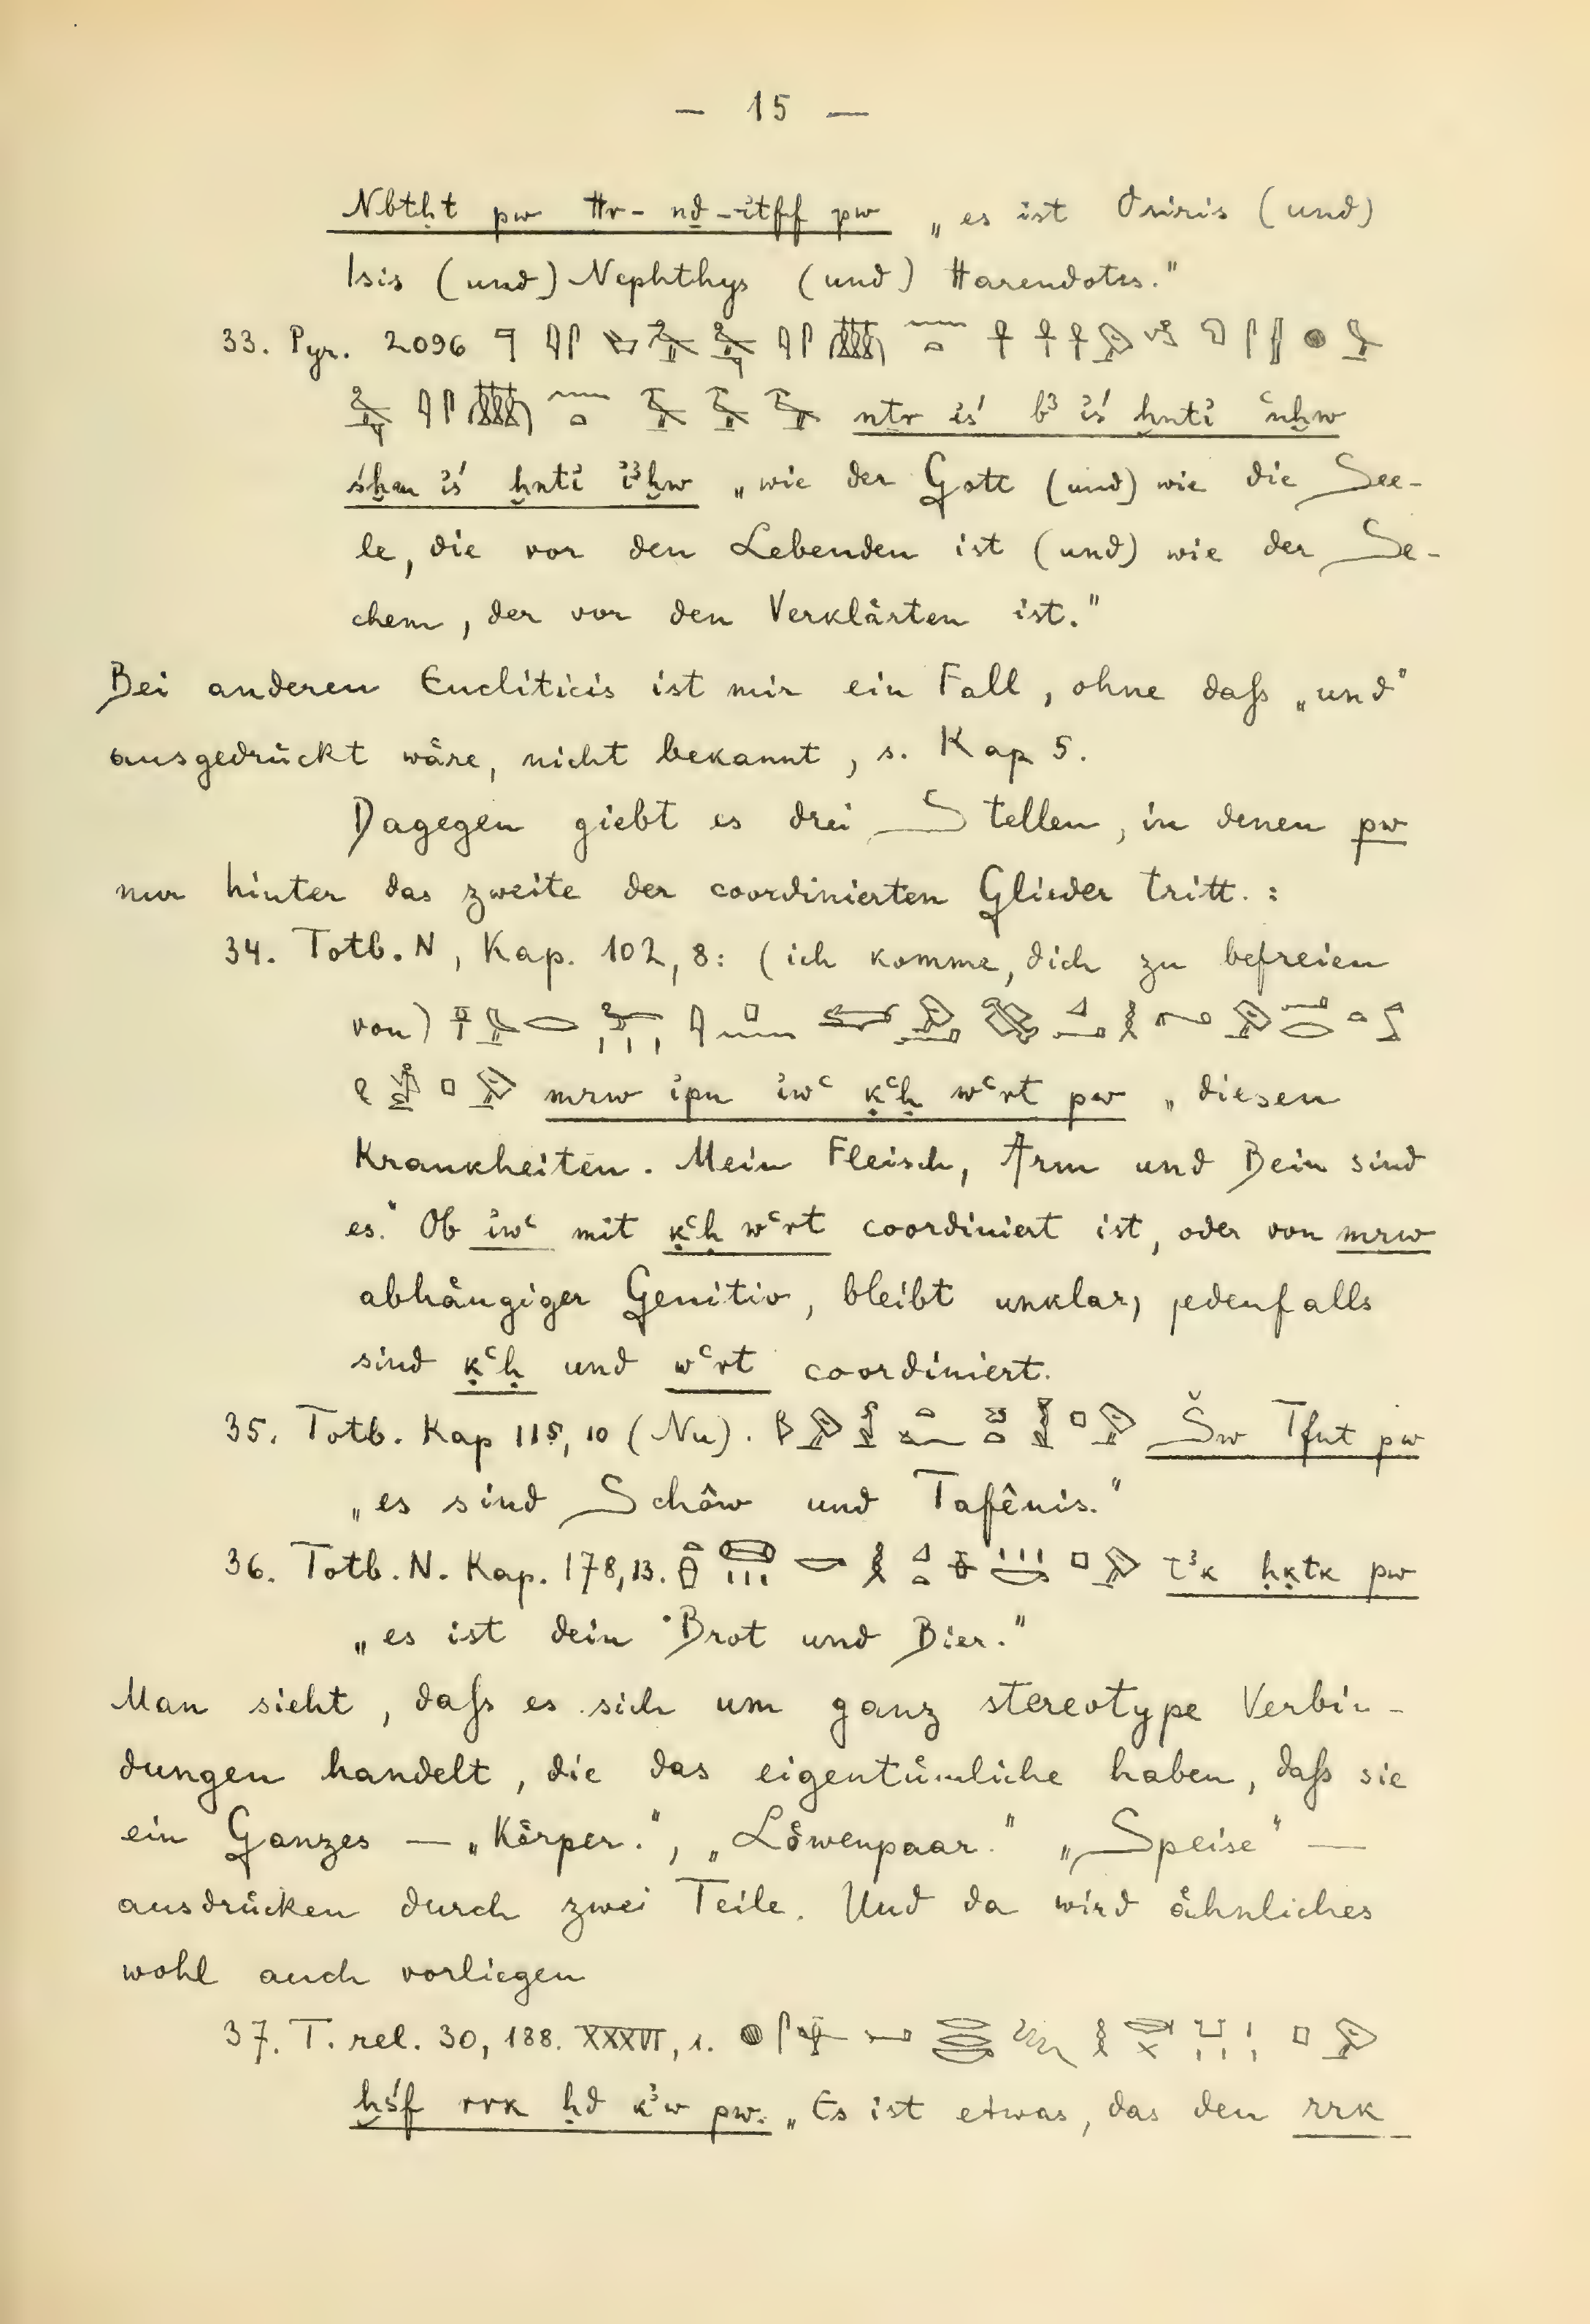 — 15 —
Nbtḥt pw Ḥr-nḏ-ітff pw „es ist Osiris (und)
Isis (und) Nephthys (und) Harendotes."
33. Pyr. 2096
ntr iś b³ iś ḫnti ꜥnḫw
śḫm iś ḫnti i³ḫw „wie der Gott (und) wie die See-
le, die vor den Lebenden ist (und) wie der Se-
chem, der vor den Verklärten ist."
Bei anderen Encliticis ist mir ein Fall, ohne daſs „und"
ausgedrückt wäre, nicht bekannt, s. Kap 5.
Dagegen giebt es drei Stellen, in denen pw
nur hinter das zweite der coordinierten Glieder tritt. :
34. Totb. N, Kap. 102, 8: (ich komme, dich zu befreien
von)
mrw ipn iwꜥ ḳꜥḥ wꜥrt pw „diesen
Krankheiten. Mein Fleisch, Arm und Bein sind
es." Ob iwꜥ mit ḳꜥḥ wꜥrt coordiniert ist, oder von mrw
abhängiger Genitiv, bleibt unklar, jedenfalls
sind ḳꜥḥ und wꜥrt coordiniert.
35. Totb. Kap 115, 10 (Nu). Šw Tfnt pw
„es sind Schôw und Tafênis."
36. Totb. N. Kap. 178, 13. t³k ḥḳtk pw
„es ist dein Brot und Bier."
Man sieht, daſs es sich um ganz stereotype Verbin-
dungen handelt, die das eigentümliche haben, daſs sie
ein Ganzes — „Körper.", „Löwenpaar." „Speise" —
ausdrücken durch zwei Teile. Und da wird ähnliches
wohl auch vorliegen
37. T. rel. 30, 188. XXXVI, 1.
ḫśf rrk ḥḏ k³w pw. „Es ist etwas, das den rrk